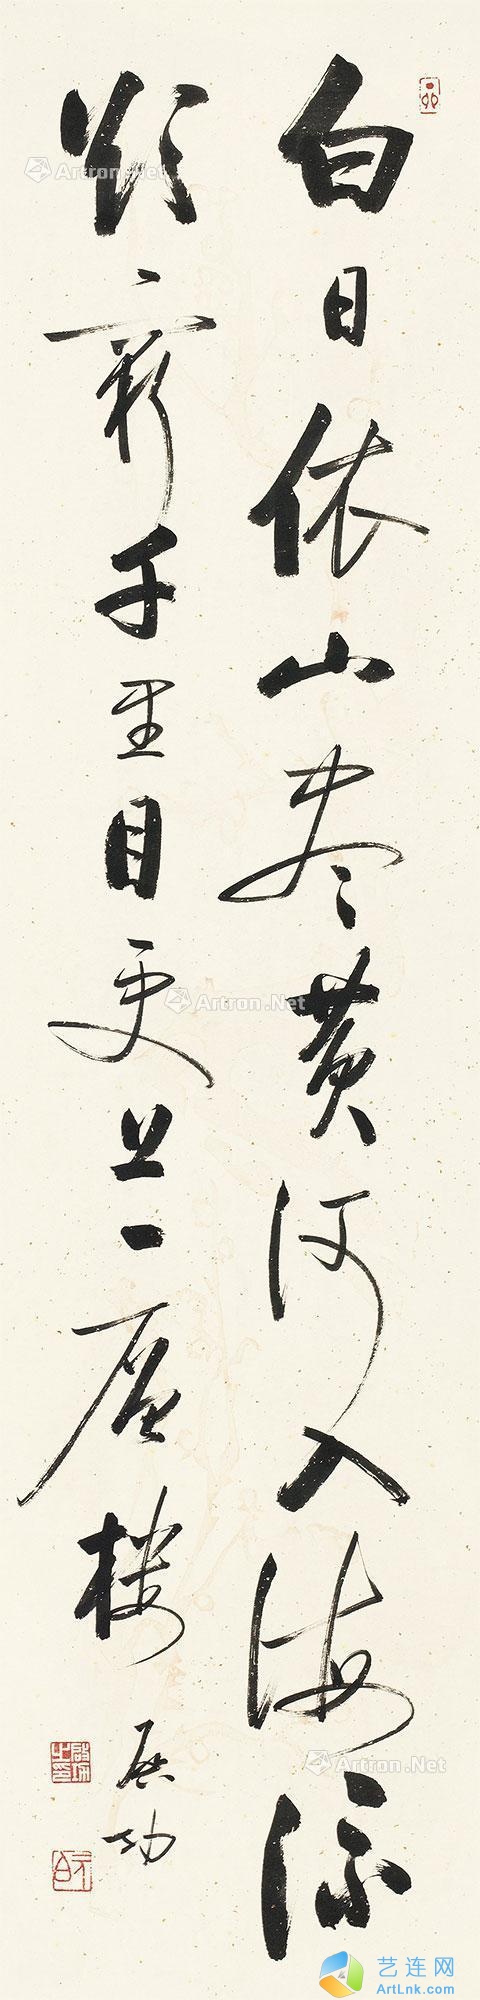 白日依山尽黄河入海流
欲穷千里目更上一层楼
启功
Artron.Net
Artron.Net
Artron.Net
Artron.Net
Artron.Net
Artron.Net
艺连网
ArtLnk.com